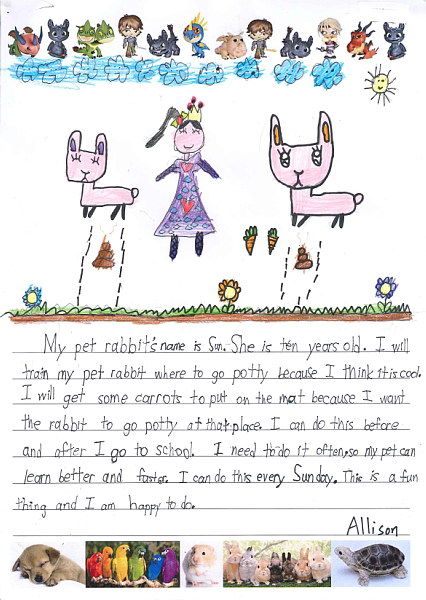 My pet rabbit's name is Sun. She is ten years old. I will
train my pet rabbit where to go potty because I think it is cool.
I will get some carrots to put on the mat because I want
the rabbit to go potty at that place. I can do this before
and after I go to school. I need to do it often, so my pet can
learn better and faster. I can do this every Sunday. This is a fun
thing and I am happy to do.
Allison